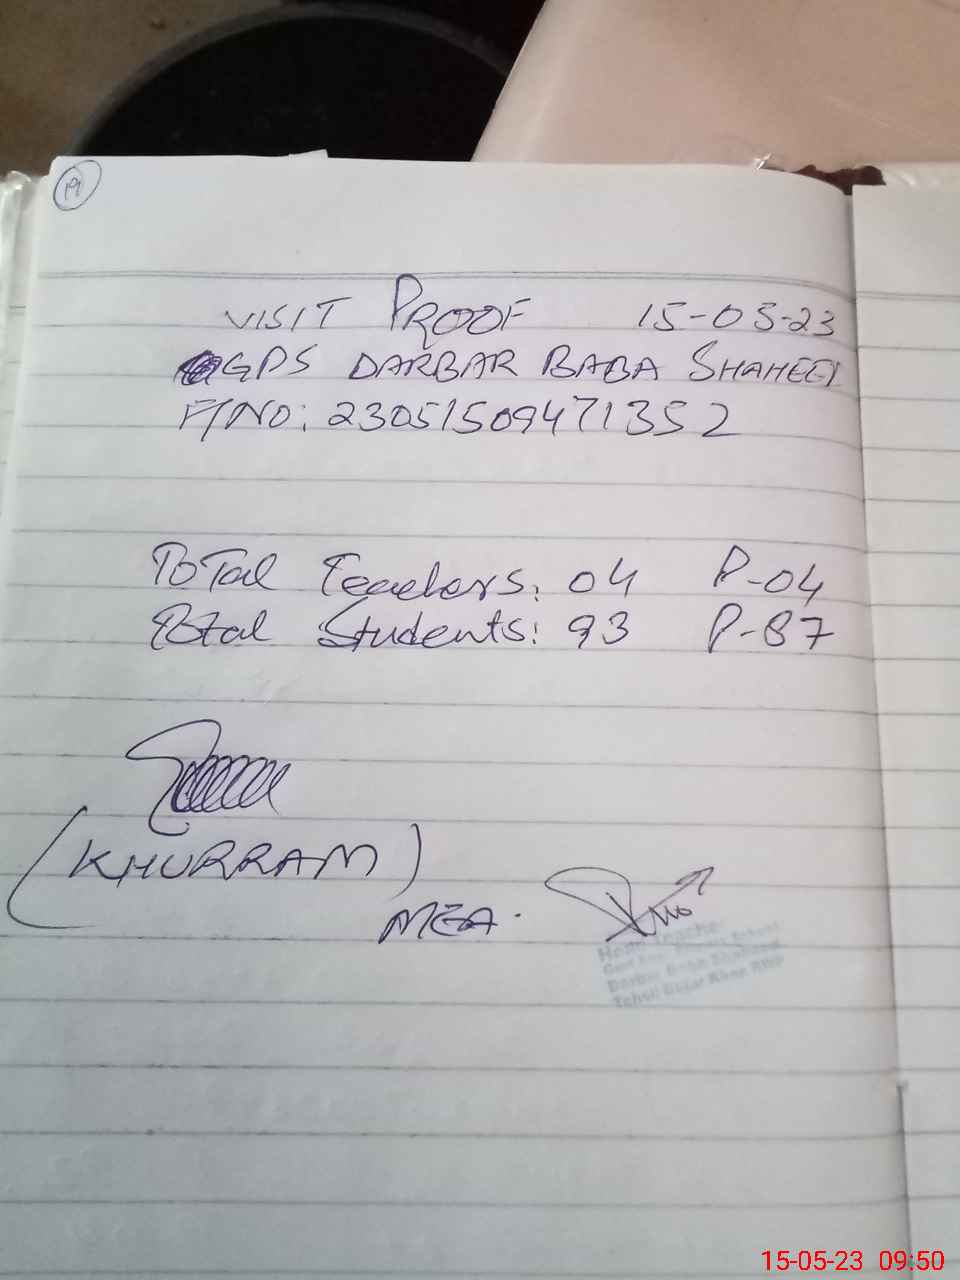 19
VISIT PROOF 15-05-23
GPS DARBAR BABA SHAHEED
F/NO: 23051509471352
Total Teachers: 04 P-04
Total Students: 93 P-87
(KHURRAM)
MEA.
Head Teacher
Darbar Baba Shaheed
Tehsil Gujar Khan RWP
15-05-23 09:50